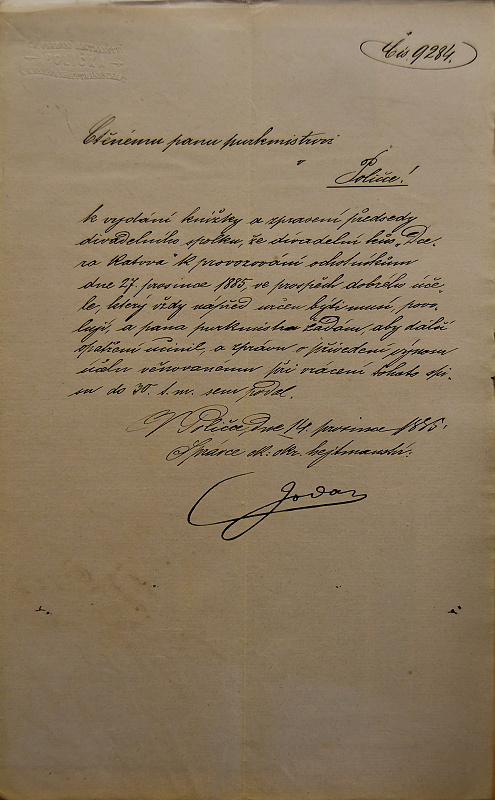 Čís. 9284.
Ctěnému panu purkmistrovi
v
Poličce!
k vydání knížky a zpravení předsedy
divadelního spolku, že divadelní kus „Dce-
ra katova" k provozování ochotníkům
dne 27. prosince 1885, ve prospěch dobrého úče-
le, který vždy napřed určen býti musí, povo-
luji, a pana purkmistra žádám, aby další
opatření učinil, a zprávu o přivedení výnosu
účelu věnovanému při vrácení tohoto spi-
su do 30. t. m. sem podal.
V Poličce, dne 14. prosince 1885.
Správce ck. okr. hejtmanství: